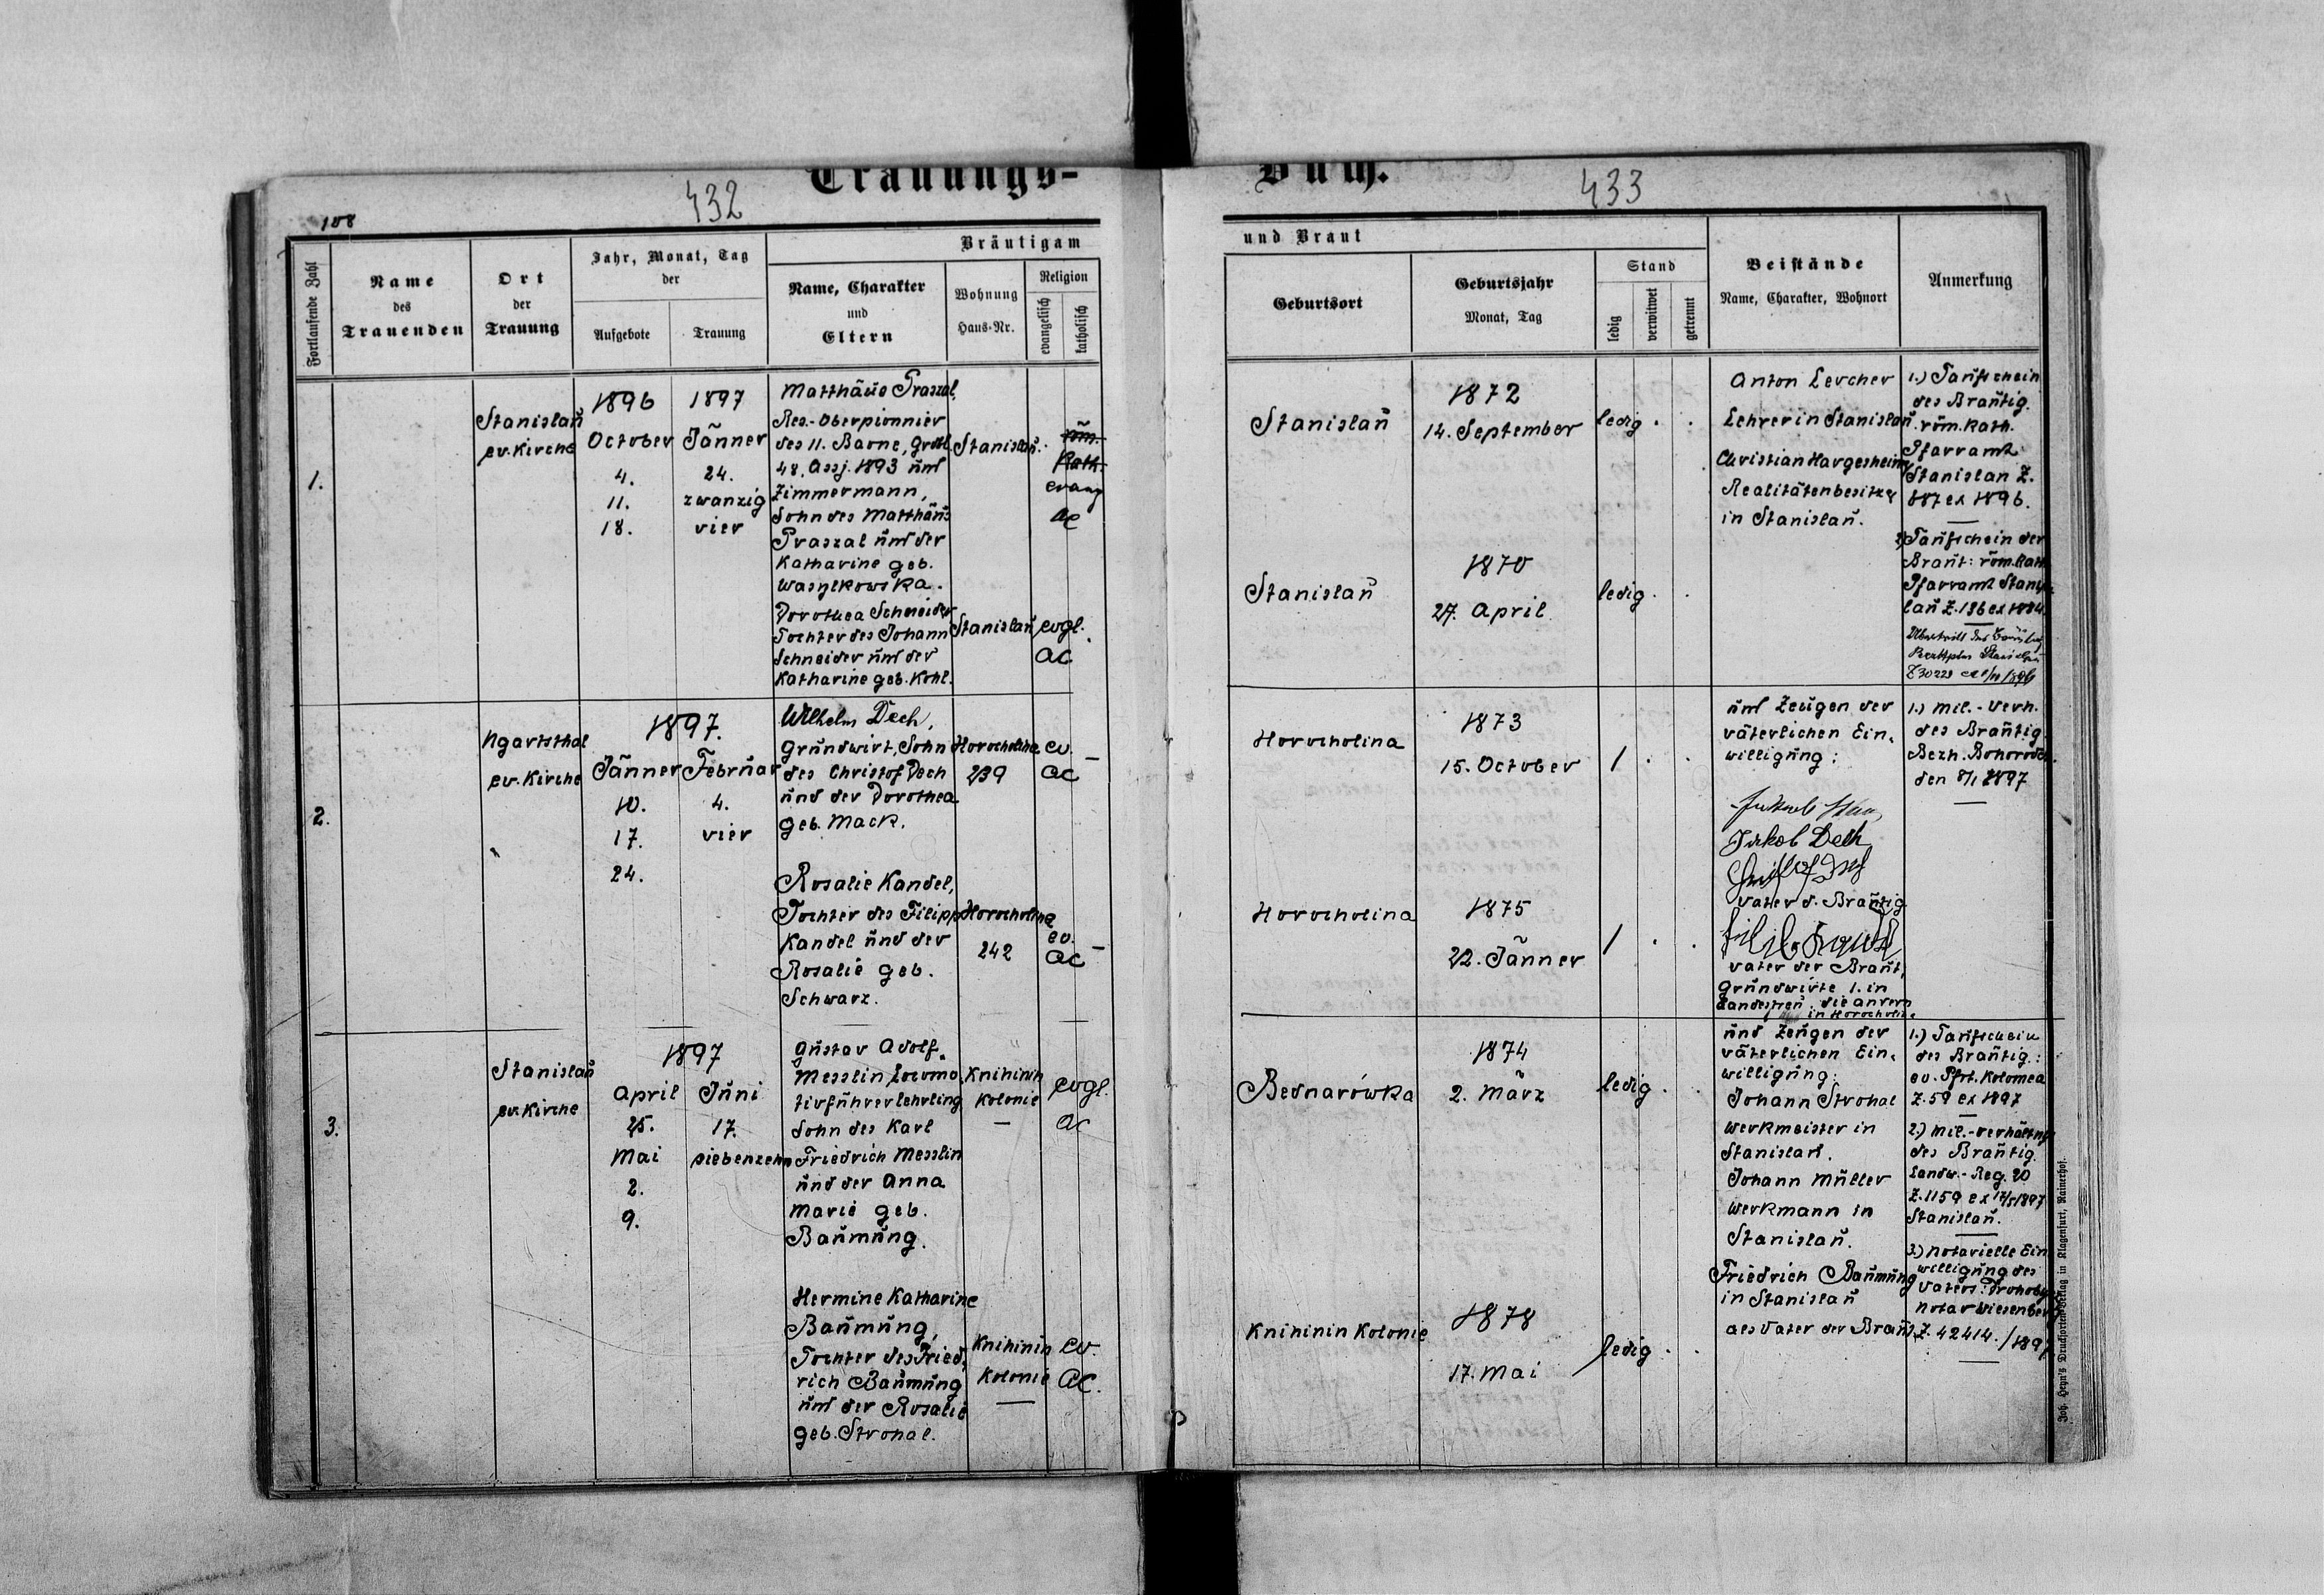 Trauungs-
432
108
Fortlaufende Zahl
Name
des
Trauenden
Ort
der
Trauung
Jahr, Monat, Tag
der
Aufgebote
Trauung
Bräutigam
Name, Charakter
und
Eltern
Wohnung
Haus-Nr.
Religion
evangelisch
katholisch
1.
Stanislaŭ
ev. Kirche
1896
October
4.
11.
18.
1897
Jänner
24.
zwanzig
vier
Matthäus Praszal,
Res.-Oberpionnier
des 11. Baone, Grdbl.
48. Assj. 1893 ŭnd
Zimmermann,
Sohn des Matthäŭs
Praszal ŭnd der
Katharine geb.
Wasylkowska.
Stanislaŭ.
röm.
Kath.
evang
AC
Dorothea Schneider
Tochter des Johann
Schneider ŭnd der
Katharine geb. Kohl.
Stanislaŭ
evgl.
AC
2.
Ugartsthal
ev. Kirche
1897.
Jänner
10.
17.
24.
Febrŭar
4.
vier
Wilhelm Dech,
Grŭndwirt, Sohn
des Christof Dech
ŭnd der Dorothea
geb. Mack.
Horocholina
239
ev.
AC
Rosalie Kandel,
Tochter des Filipp
Kandel ŭnd der
Rosalie geb.
Schwarz.
Horocholina
242
ev.
AC
3.
Stanislaŭ
ev. Kirche
1897
April
25.
Mai
2.
9.
Jŭni
17.
siebenzehn
Gŭstav Adolf
Messlin, Locomo-
tivführerlehrling
Sohn des Karl
Friedrich Messlin
ŭnd der Anna
Marie geb.
Baŭmŭng.
Knihinin
Kolonie
—
evgl.
AC
Hermine Katharine
Baŭmŭng,
Tochter des Fried-
rich Baŭmŭng
ŭnd der Rosalie
geb. Strohal.
Knihinin
Kolonie
—
ev.
AC.
Buch.
433
und Braut
Geburtsort
Geburtsjahr
Monat, Tag
Stand
ledig
verwitwet
getrennt
Beistände
Name, Charakter, Wohnort
Anmerkung
Stanislaŭ
1872
14. September
ledig
Anton Lercher
Lehrer in Stanislaŭ.
Christian Hargesheimer
Realitätenbesitzer
in Stanislaŭ.
1.) Taŭfschein
des Braŭtig.
röm. Kath.
Pfarramt
Stanislau Z.
687 ex 1896.
Stanislaŭ
1870
27. April
ledig
2.) Taŭfschein der
Braŭt: röm. Kath.
Pfarramt Stanis-
laŭ Z. 186 ex 1884
Horocholina
1873
15. October
1
ŭnd Zeŭgen der
väterlichen Ein-
willigŭng:
Jakob Dech
Vater d. Braŭtig.
1.) Mil.-Verh.
des Braŭtig.
Bezh. Bohorodcz.
den 8/1 1897
Horocholina
1875
22. Jänner
1
Vater der Braŭt,
Grŭndwirte 1. in
Landestreŭ, die andern
in Horocholina
Bednarówka
1874
2. März
ledig
ŭnd Zeŭgen der
väterlichen Ein-
willigŭng:
Johann Strohal
Werkmeister in
Stanislaŭ.
Johann Müller
Werkmann in
Stanislaŭ.
Friedrich Baŭmŭng
in Stanislaŭ
als Vater der Braŭt
1.) Taŭfschein
des Braŭtig.:
ev. Pfrt. Kolomea
Z. 59 ex 1897
2.) Mil.-Verhältnis
des Braŭtig.
Landw.-Reg. 20
Z. 1159 ex 17/5 1897
Stanislaŭ.
3.) Notarielle Ein-
willigŭng des
Vaters: Drohobycz
Notar Wiesenberg
Z. 42414./1897
Knihinin Kolonie
1878
17. Mai
ledig
Joh. Heyn's Drucksorten-Verlag in Klagenfurt, Rainerhof.